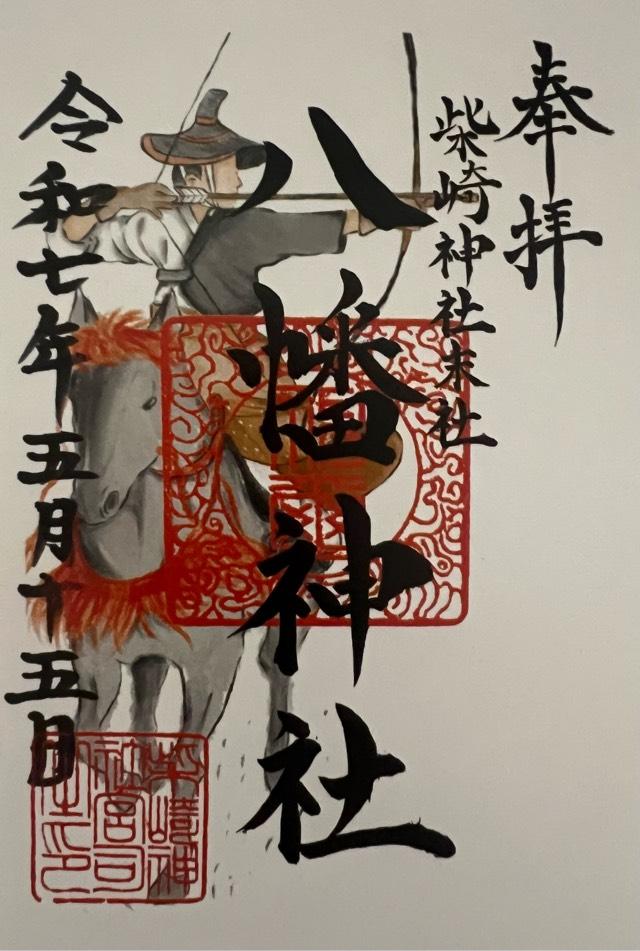 奉拝
柴崎神社末社
八幡神社
令和七年五月十五日
柴崎神
社宮司
之印